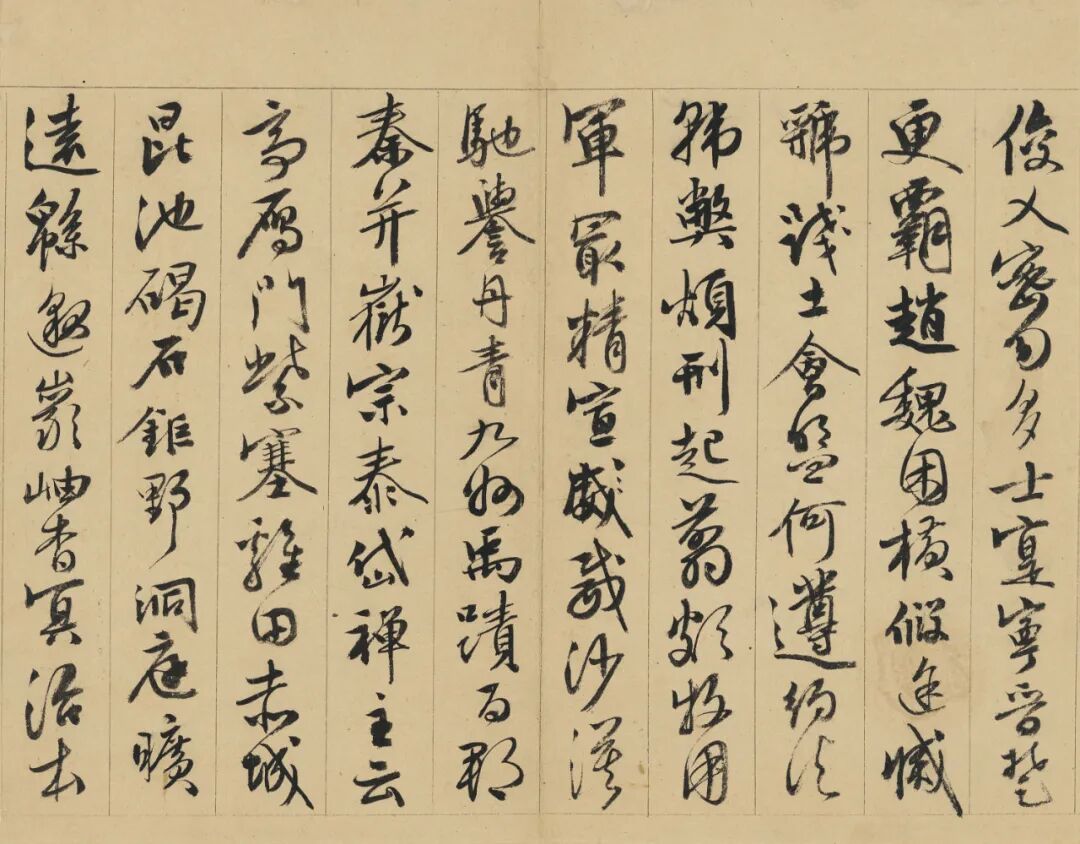 俊乂密勿多士寔寧晉楚
更霸趙魏困橫假途滅
虢踐土會盟何遵約法
韓弊煩刑起翦頗牧用
軍冣精宣威威沙漠
馳譽丹青九州禹蹟百郡
秦并嶽宗泰岱禪主云
亭鴈門紫塞雞田赤城
昆池碣石鉅野洞庭曠
遠緜邈巖岫杳冥治本